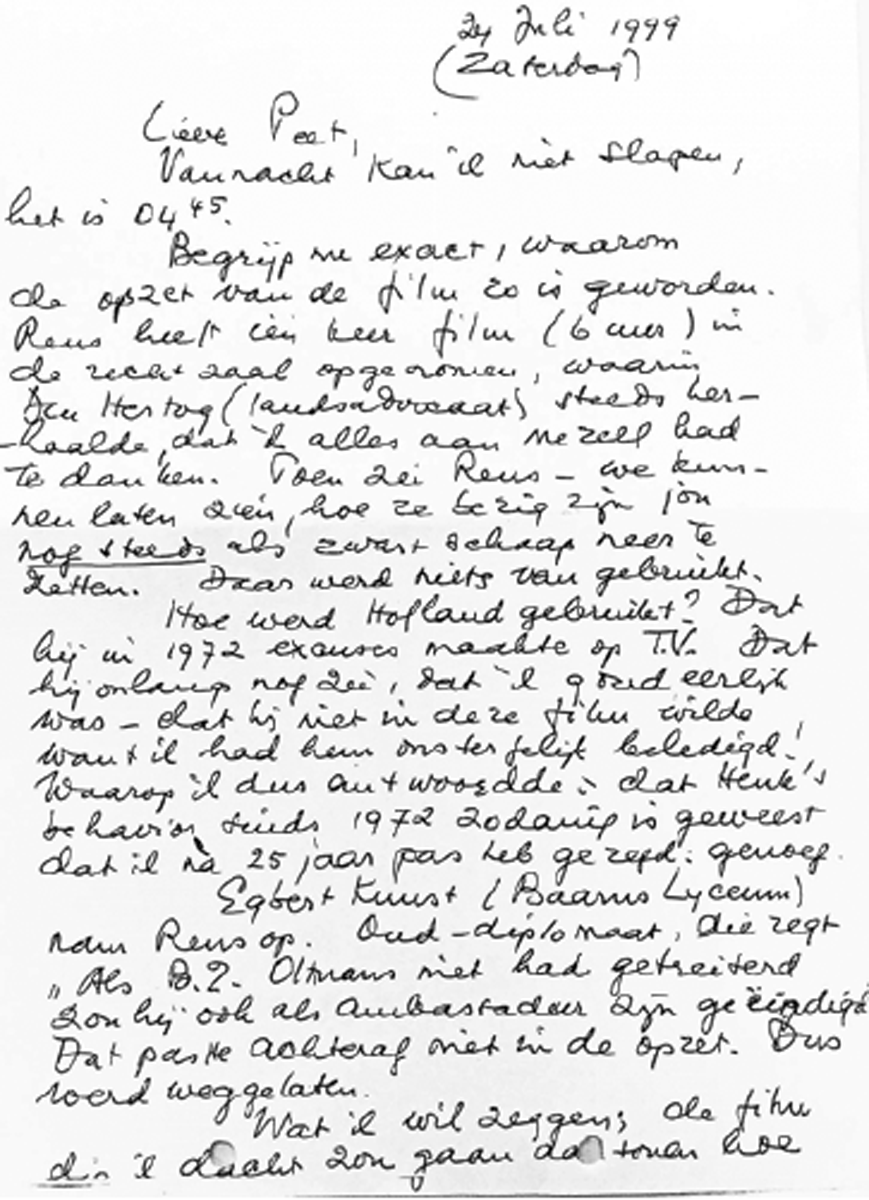 24 Juli 1999
(Zaterdag)
Lieve Peet,
Vannacht kan ik niet slapen,
het is 04 45.
Begrijp me exact, waarom
de opzet van de film zo is geworden.
Rens heeft één keer film (6 uur) in
de rechtzaal opgenomen, waarin
Den Hertog (landsadvocaat) steeds her-
-haalde, dat ik alles aan mezelf had
te danken. Toen zei Rens - we kun-
nen laten zien, hoe ze bezig zijn jou
nog steeds als zwart schaap neer te
zetten. Daar werd niets van gebruikt.
Hoe werd Hofland gebruikt? Dat
hij in 1972 excuses maakte op T.V. Dat
hij onlangs nog zei, dat ik goud eerlijk
was - dat hij niet in deze film wilde,
want ik had hem onsterfelijk beledigd!
Waarop ik dus antwoordde: dat Henk's
behavior sinds 1972 zodanig is geweest
dat ik ná 25 jaar pas heb gezegd: genoeg.
Egbert Kunst (Baarns Lyceum)
nam Rens op. Oud-diplomaat, die zegt
„Als B.Z. Oltmans niet had getreiterd
zou hij ook als ambassadeur zijn geëindigd
Dat paste achteraf niet in de opzet. Dus
werd weggelaten.
Wat ik wil zeggen; de film
die ik dacht zou gaan aantonen hoe